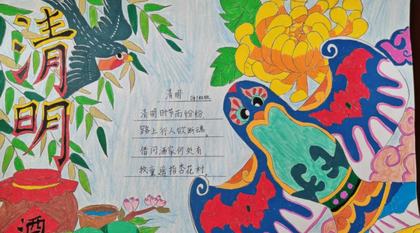 清明
清明
清明时节雨纷纷
路上行人欲断魂
借问酒家何处有
牧童遥指杏花村
酒